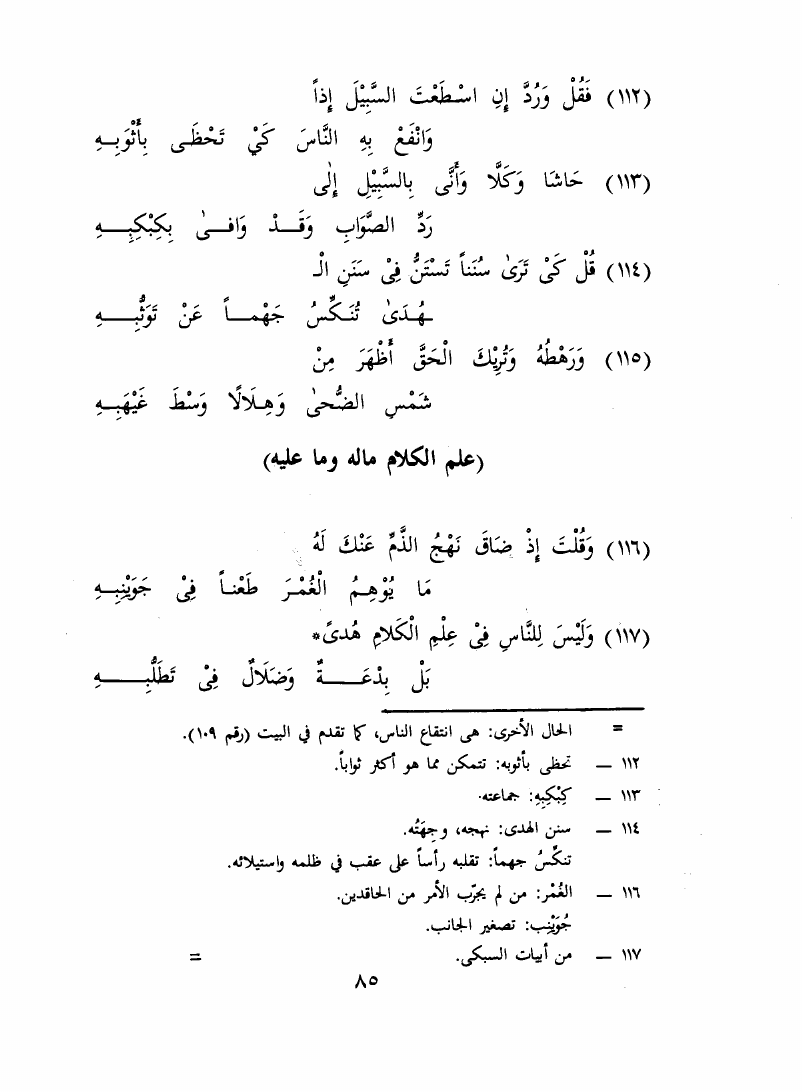 (١١٢) فَقُلْ وَرُدَّ إِنِ اسْطَعْتَ السَّبِيْلَ إِذاً
وَانْفَعْ بِهِ النَّاسَ كَيْ تَحْظَـى بِأَثْوَبِـــهِ
(١١٣) حَاشَا وَكَلَّا وَأَنَّى بِالسَّبِيْلِ إِلٰى
رَدِّ الصَّوَابِ وَقَــدْ وَافــىٰ بِكِبْكِبِـــهِ
(١١٤) قُلْ كَىْ تَرَىٰ سُنَناً تَسْتَنُّ فِىْ سَنَنِ الْـ
ـهُـدَىٰ تُنَـكِّسُ جَهْمـــاً عَنْ تَوَثُّبِـــــهِ
(١١٥) وَرَهْطُهُ وَتُرِيْكَ الْحَقَّ أَظْهَرَ مِنْ
شَمْسِ الضُّحىٰ وَهِـلَالًا وَسْطَ غَيْهَبِـــهِ
(علم الكلام ماله وما عليه)
(١١٦) وَقُلْتَ إِذْ ضَاقَ نَهْجُ الذَّمِّ عَنْكَ لَهُ
مَا يُوْهِـمُ الْغُمْـرَ طَعْنـاً فِىْ جَوَيْنِبِـــهِ
(١١٧) وَلَيْسَ لِلنَّاسِ فِىْ عِلْمِ الْكَلَامِ هُدىً*
بَلْ بِدْعَـــــةٌ وَضَلَالٌ فِىْ تَطَلُّبِـــــــهِ
= الحال الأخرى: هى انتفاع الناس، كما تقدم في البيت (رقم ١٠٩).
١١٢ — تحظى بأثوبه: تتمكن مما هو أكثر ثواباً.
١١٣ — كِبْكِبِهِ: جماعته.
١١٤ — سنن الهدى: نهجه، وجِهَتُه.
تنكِّسُ جهماً: تقلبه رأساً على عقب في ظلمه واستيلائه.
١١٦ — الغُمْر: من لم يجرّب الأمر من الحاقدين.
جُوَيْنِب: تصغير الجانب.
١١٧ — من أبيات السبكى. =
٨٥